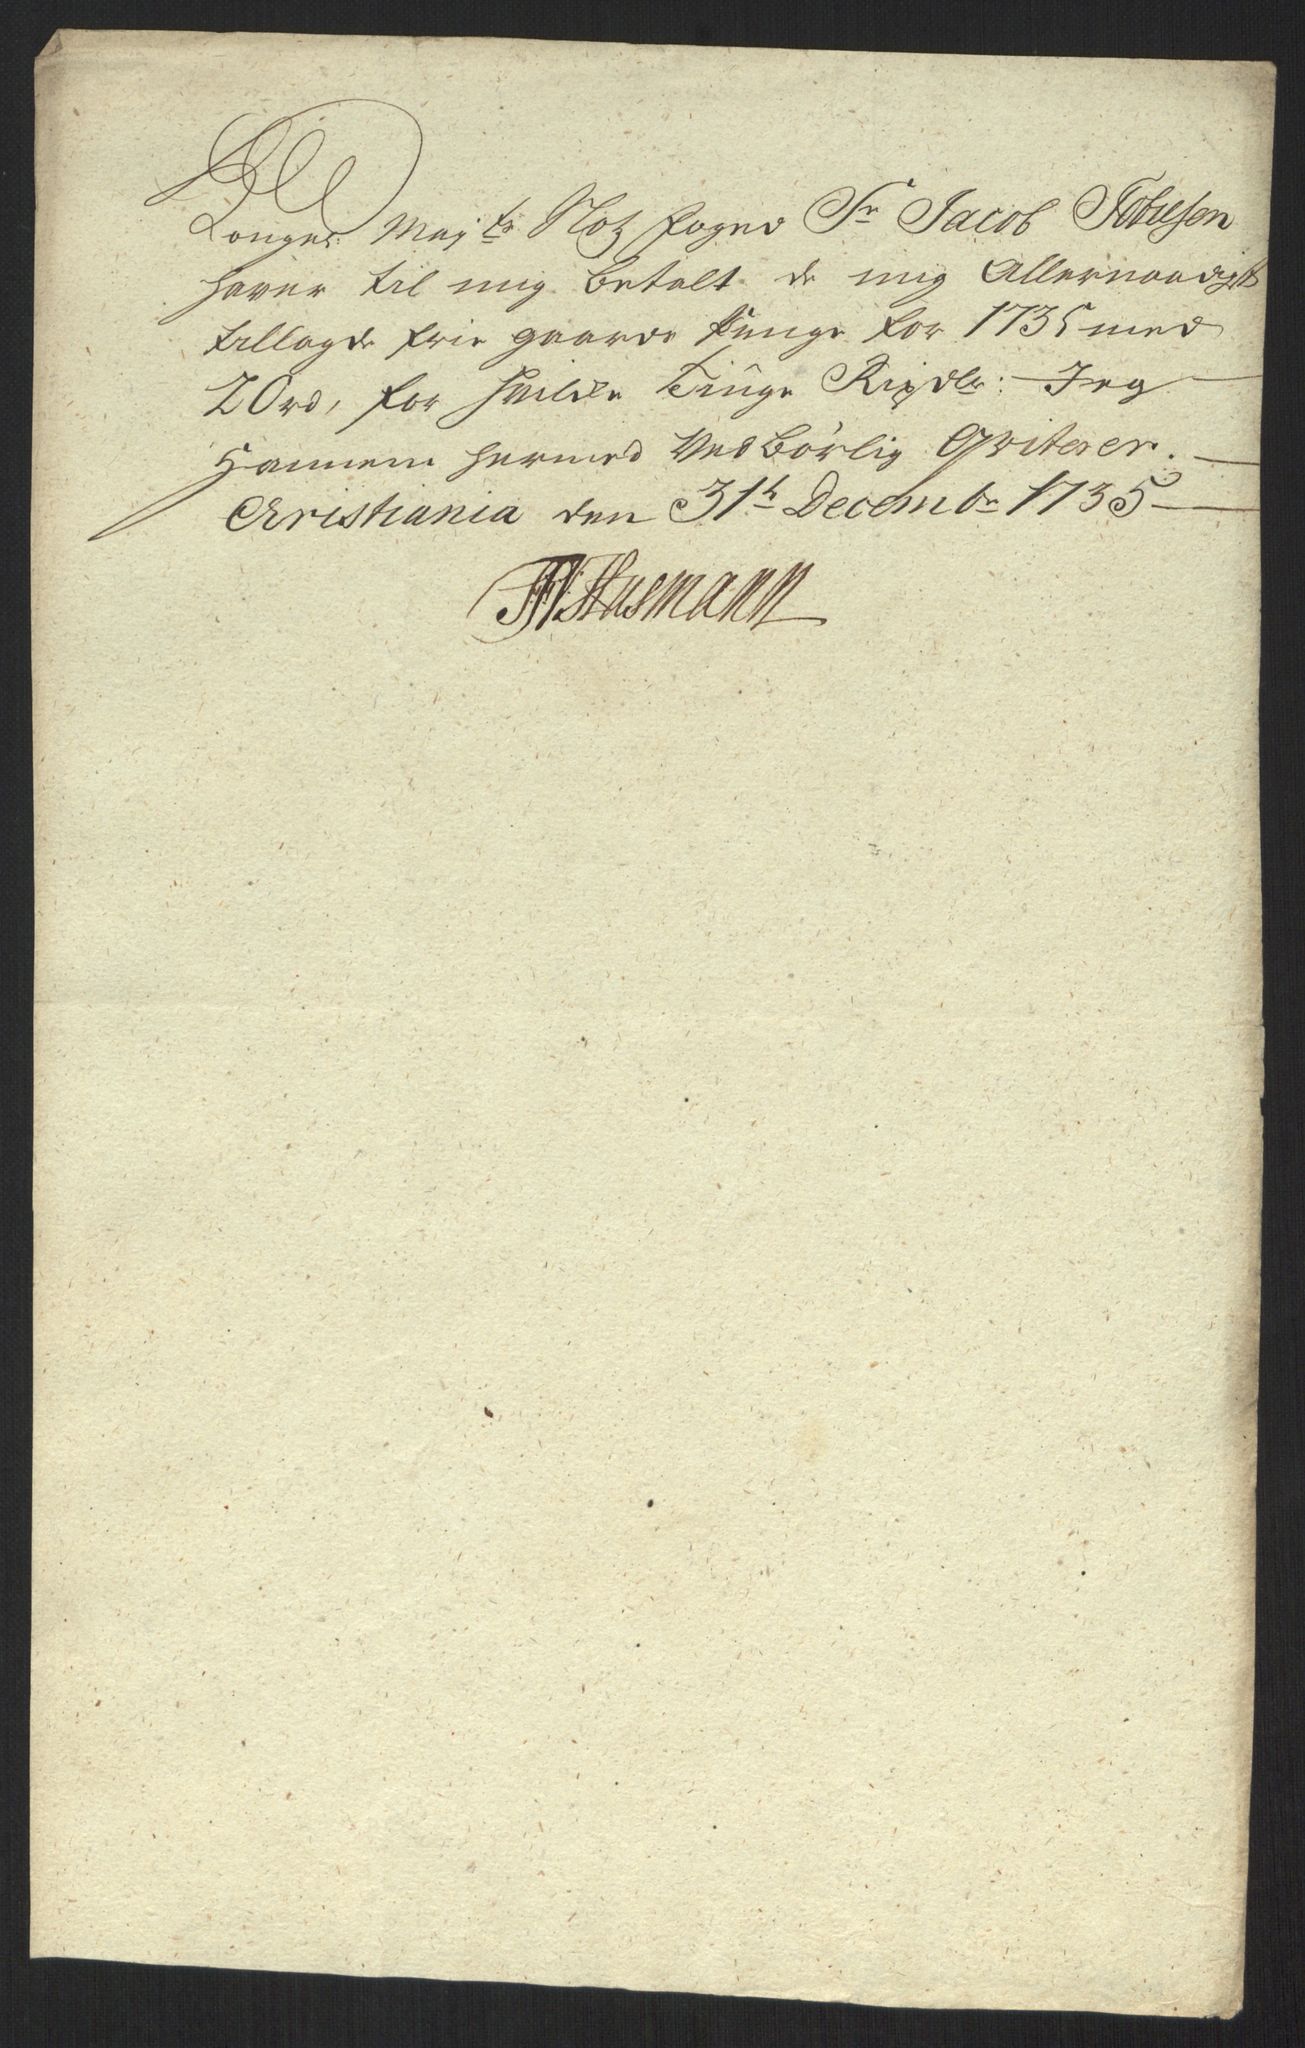 Konges Mayts Slotz foged Sr Jacob Tobiesen
haver til mig betalt de mig Allernaadigst
tillagde frie gaards Penge for 1735 med
20 rd, for hvilke Tiuge Rixdlr: Jeg
Hannem hermed Vedbørlig Qviterer.
Christiania den 31th Decembr 1735
Husmann